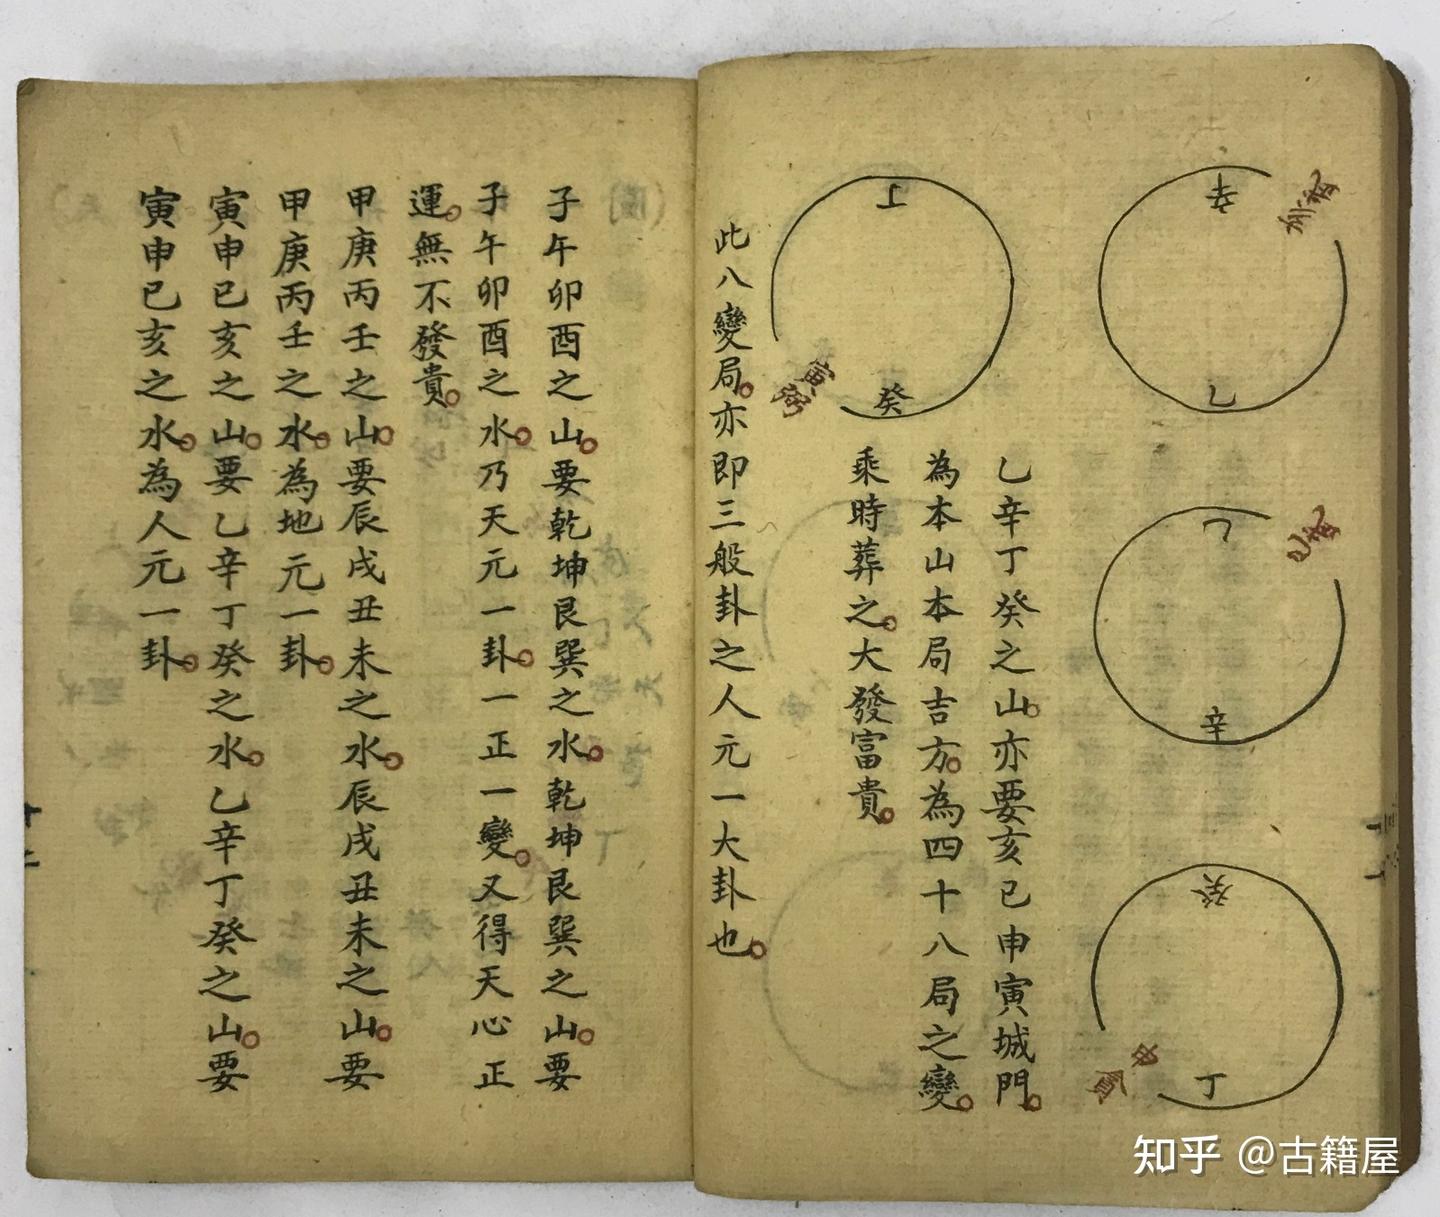 辛
乙
亥
乙
辛
巳
癸
丁
申
貪
丁
癸
寅
弼
乙辛丁癸之山。亦要亥巳申寅城門。
為本山本局吉方。為四十八局之變。
乘時葬之。大發富貴。
此八變局。亦即三般卦之人元一大卦也。
子午卯酉之山。要乾坤艮巽之水。乾坤艮巽之山。要
子午卯酉之水。乃天元一卦。一正一變。又得天心正
運。無不發貴。
甲庚丙壬之山。要辰戌丑未之水。辰戌丑未之山。要
甲庚丙壬之水。為地元一卦。
寅申巳亥之山。要乙辛丁癸之水。乙辛丁癸之山。要
寅申巳亥之水。為人元一卦。
知乎 @古籍屋